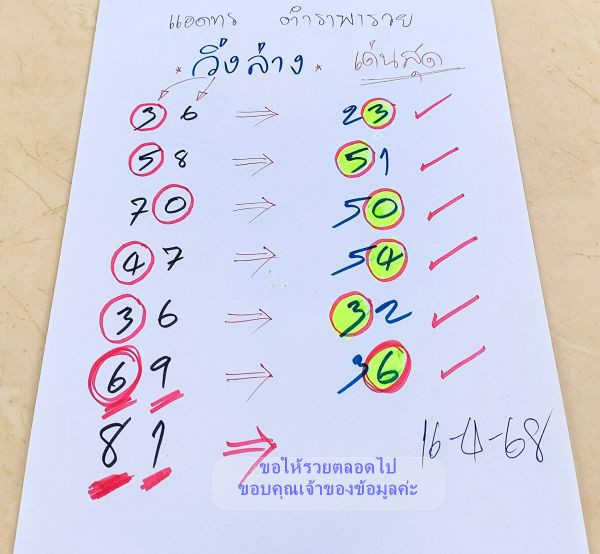 แอดทร ตำราพารวย
* วิ่งล่าง * เด่นสุด
36 ⇒ 23 ✓
58 ⇒ 51 ✓
70 ⇒ 50 ✓
47 ⇒ 54 ✓
36 ⇒ 32 ✓
69 ⇒ 36 ✓
81 ⇒ 16-4-68
ขอให้รวยตลอดไป
ขอบคุณเจ้าของข้อมูลค่ะ